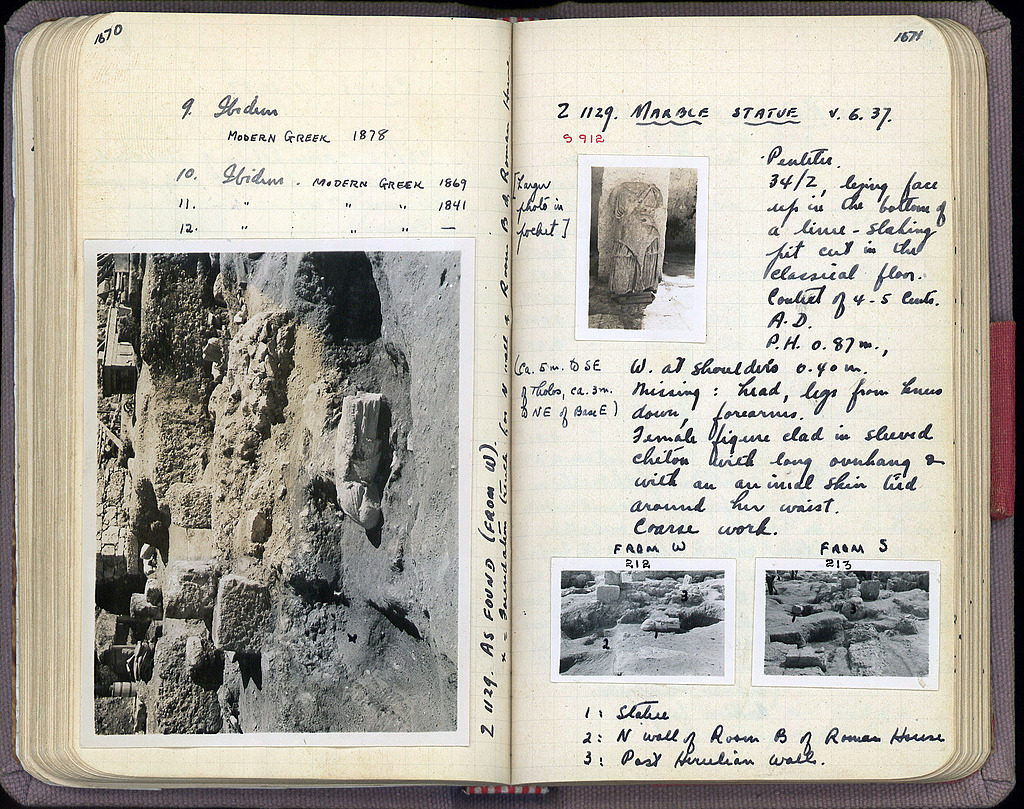 1670
9. Ibidem
MODERN GREEK 1878
10. Ibidem. MODERN GREEK 1869
11. " " " 1841
12. " " " —
Z 1129. AS FOUND (FROM W).
x = Foundation trench for N wall of Room B of Roman House
1671
Z 1129. MARBLE STATUE V. 6. 37.
S 912
[Larger
photo in
pocket]
Pentelic.
34/Z, lying face
up in the bottom of
a lime-slaking
pit cut in the
classical floor.
Context of 4-5 Cents.
A.D.
P.H. 0.87 m.,
(ca. 5 m. to SE
of Tholos, ca. 3 m.
to NE of Base E)
W. at shoulders 0.40 m.
Missing: head, legs from knees
down, forearms.
Female figure clad in sleeved
chiton with long overhang &
with an animal skin tied
around her waist.
Coarse work.
FROM W
212
FROM S
213
3
1
2
3
1: Statue
2: N wall of Room B of Roman House
3: Post Herulian Wall.